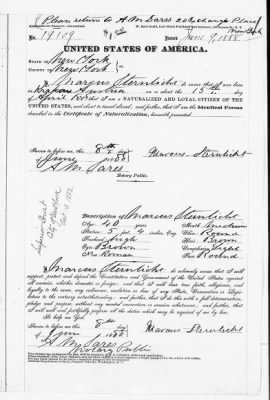 Please return to A M Dares 20 Exchange Place
New York
No. 19109
Issued June 9, 1888
UNITED STATES OF AMERICA.
STATE OF New York
COUNTY OF New York
I, Marcus Sternlicht do swear that I was born
in Krakau Austria on or about the 15th
day of April that I am a NATURALIZED AND LOYAL CITIZEN OF THE
UNITED STATES, and about to travel abroad; and further, that I am the Identical Person
described in the Certificate of Naturalization, herewith presented.
Sworn to before me, this 8th
day of June 1888
Marcus Sternlicht
A. M. Dares
Notary Public.
Description of Marcus Sternlicht
Age: 40 years
Mouth: Medium
Stature: 5 feet inches, Eng.
Chin: Round
Forehead: High
Hair: Brown
Eyes: Brown
Complexion: Light
Nose: Roman
Face: Round
I, Marcus Sternlicht do solemnly swear that I will
support, protect and defend the Constitution and Government of the United States against
all enemies, whether domestic or foreign; and that I will bear true faith, allegiance, and
loyalty to the same, any ordinance, resolution or law of any State, Convention or Legisla-
ture to the contrary notwithstanding; and further, that I do this with a full determination,
pledge and purpose, without any mental reservation or evasion whatsoever; and further, that
I will well and faithfully perform all the duties which may be required of me by law.
So help me God.
Sworn to before me this 8th
day of June 1888
Marcus Sternlicht
A M Dares
Notary Public